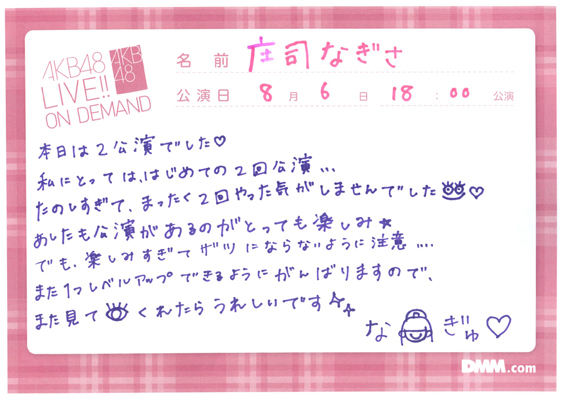 AKB48
LIVE!!
ON DEMAND
AKB
48
名前 庄司なぎさ
公演日 8月6日 18:00公演
本日は2公演でした♡
私にとっては、はじめての2回公演...
たのしすぎて、まったく2回やった気がしませんでした♡
あしたも公演があるのがとっても楽しみ★
でも、楽しみすぎてザツにならないように注意....
また1つレベルアップできるようにがんばりますので、
また見てくれたらうれしいです
なぎゅ♡
DMM.com